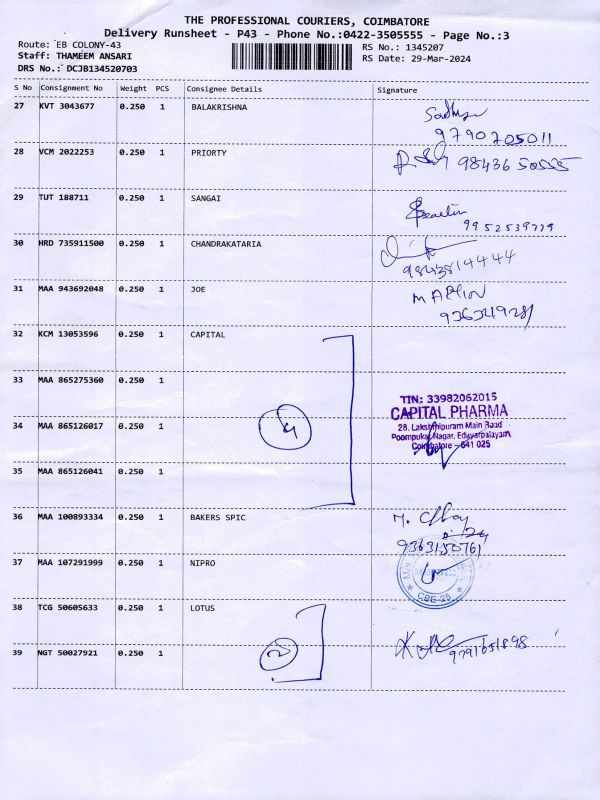 THE PROFESSIONAL COURIERS, COIMBATORE
Delivery Runsheet - P43 - Phone No.:0422-3505555 - Page No.:3
Route: EB COLONY-43
Staff: THAMEEM ANSARI
DRS No.: DCJB134520703
RS No.: 1345207
RS Date: 29-Mar-2024
S No Consignment No Weight PCS Consignee Details Signature
27 KVT 3043677 0.250 1 BALAKRISHNA
9790705011
28 VCM 2022253 0.250 1 PRIORTY
98436 50555
29 TUT 188711 0.250 1 SANGAI
9952539779
30 HRD 735911500 0.250 1 CHANDRAKATARIA
9843814444
31 MAA 943692048 0.250 1 JOE
32 KCM 13053596 0.250 1 CAPITAL
33 MAA 865275360 0.250 1
TIN: 33982062015
CAPITAL PHARMA
34 MAA 865126017 0.250 1 4
28, Lakshmipuram Main Road
Poompukar Nagar, Edayarpalayam
Coimbatore - 641 025
35 MAA 865126041 0.250 1
36 MAA 100893334 0.250 1 BAKERS SPIC
9363150761
37 MAA 107291999 0.250 1 NIPRO
CBE-25
38 TCG 50605633 0.250 1 LOTUS
39 NGT 50027921 0.250 1 2
9791651898